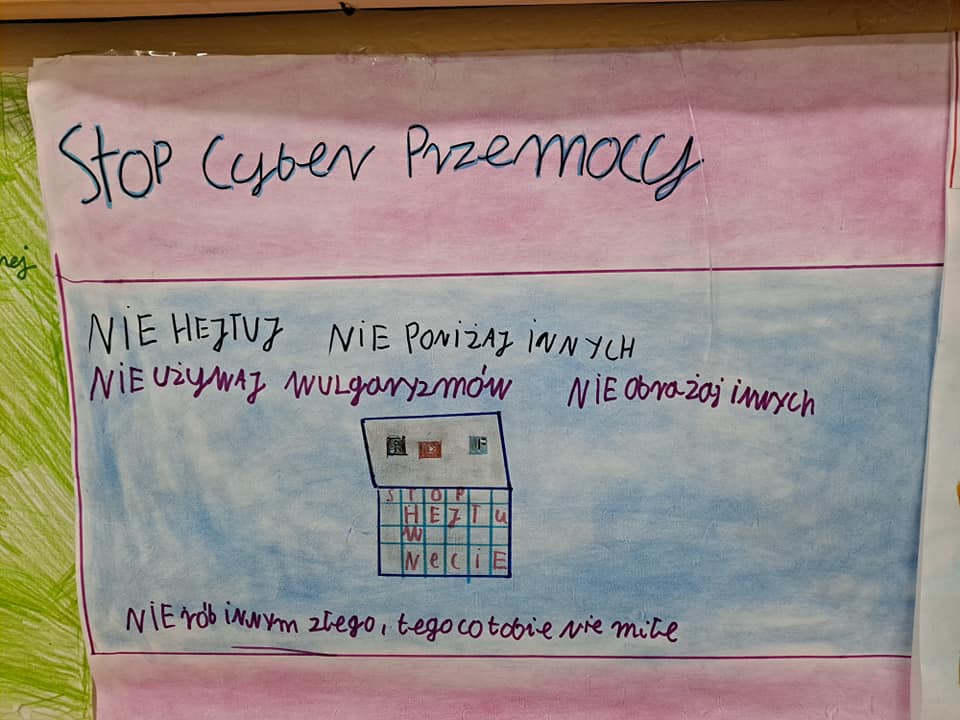 Stop Cyber Przemocy
nej
NIE HEJTUJ NIE PONIŻAJ INNYCH
NIE UŻYWAJ WULgaryzmów NIE Obrażaj innych
F
STOP
HEJTU
W
NeCiE
NIE rób innym złego, tego co tobie nie miłe